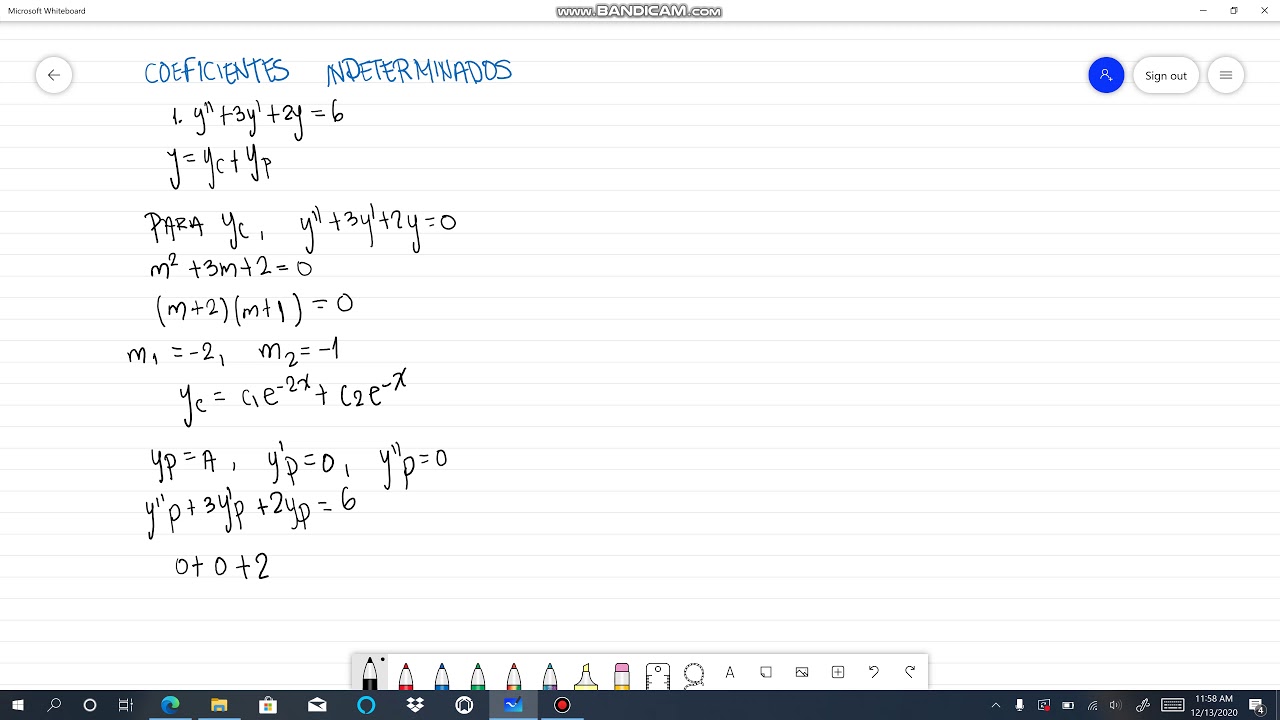 Microsoft Whiteboard
www.BANDICAM.com
COEFICIENTES INDETERMINADOS
Sign out
1. y'' + 3y' + 2y = 6
y = yc + yp
PARA yc, y'' + 3y' + 2y = 0
m² + 3m + 2 = 0
(m+2)(m+1) = 0
m₁ = -2, m₂ = -1
yc = c₁e⁻²ˣ + c₂e⁻ˣ
yp = A, y'p = 0, y''p = 0
y''p + 3y'p + 2yp = 6
0 + 0 + 2
A
11:58 AM
12/13/2020
4